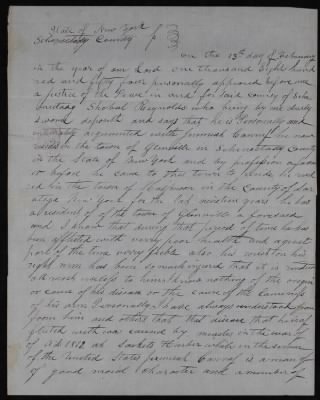 State of New York
Schenectady County
on the 13th day of February
in the year of our Lord one thousand Eight hund
red and fifty four personally appeared before me
a justice of the Peace in and for said county of Sche
Shobal Reynolds who being by me duly
sworn deposeth and says that he is Personaly and
acquainted with Jeremiah he now
resides in the town of Glenville in Schenectady County
in the State of New York and by profession a farmer
before he came to this town to reside he resid
ed in the town of in the County of Sar
atoga New York for the last years he has
a resident of of the town of Glennville a foresaid
and I know that during that period of time he has
been afflicted with verry poor health and a great
part of the time verry Sick also his
right arm has been so that it is
much use to him I know nothing of the origin
or cause of his disease or the cause of the lameness
of his arm Personaly I have always understood from
from him and others that this disease that he is af
flicted with was caused by measles in the war
of A.D. 1812 at Sackets Harbor while in the service
of the United States Jeremiah is a man of
of good moral character and a member of